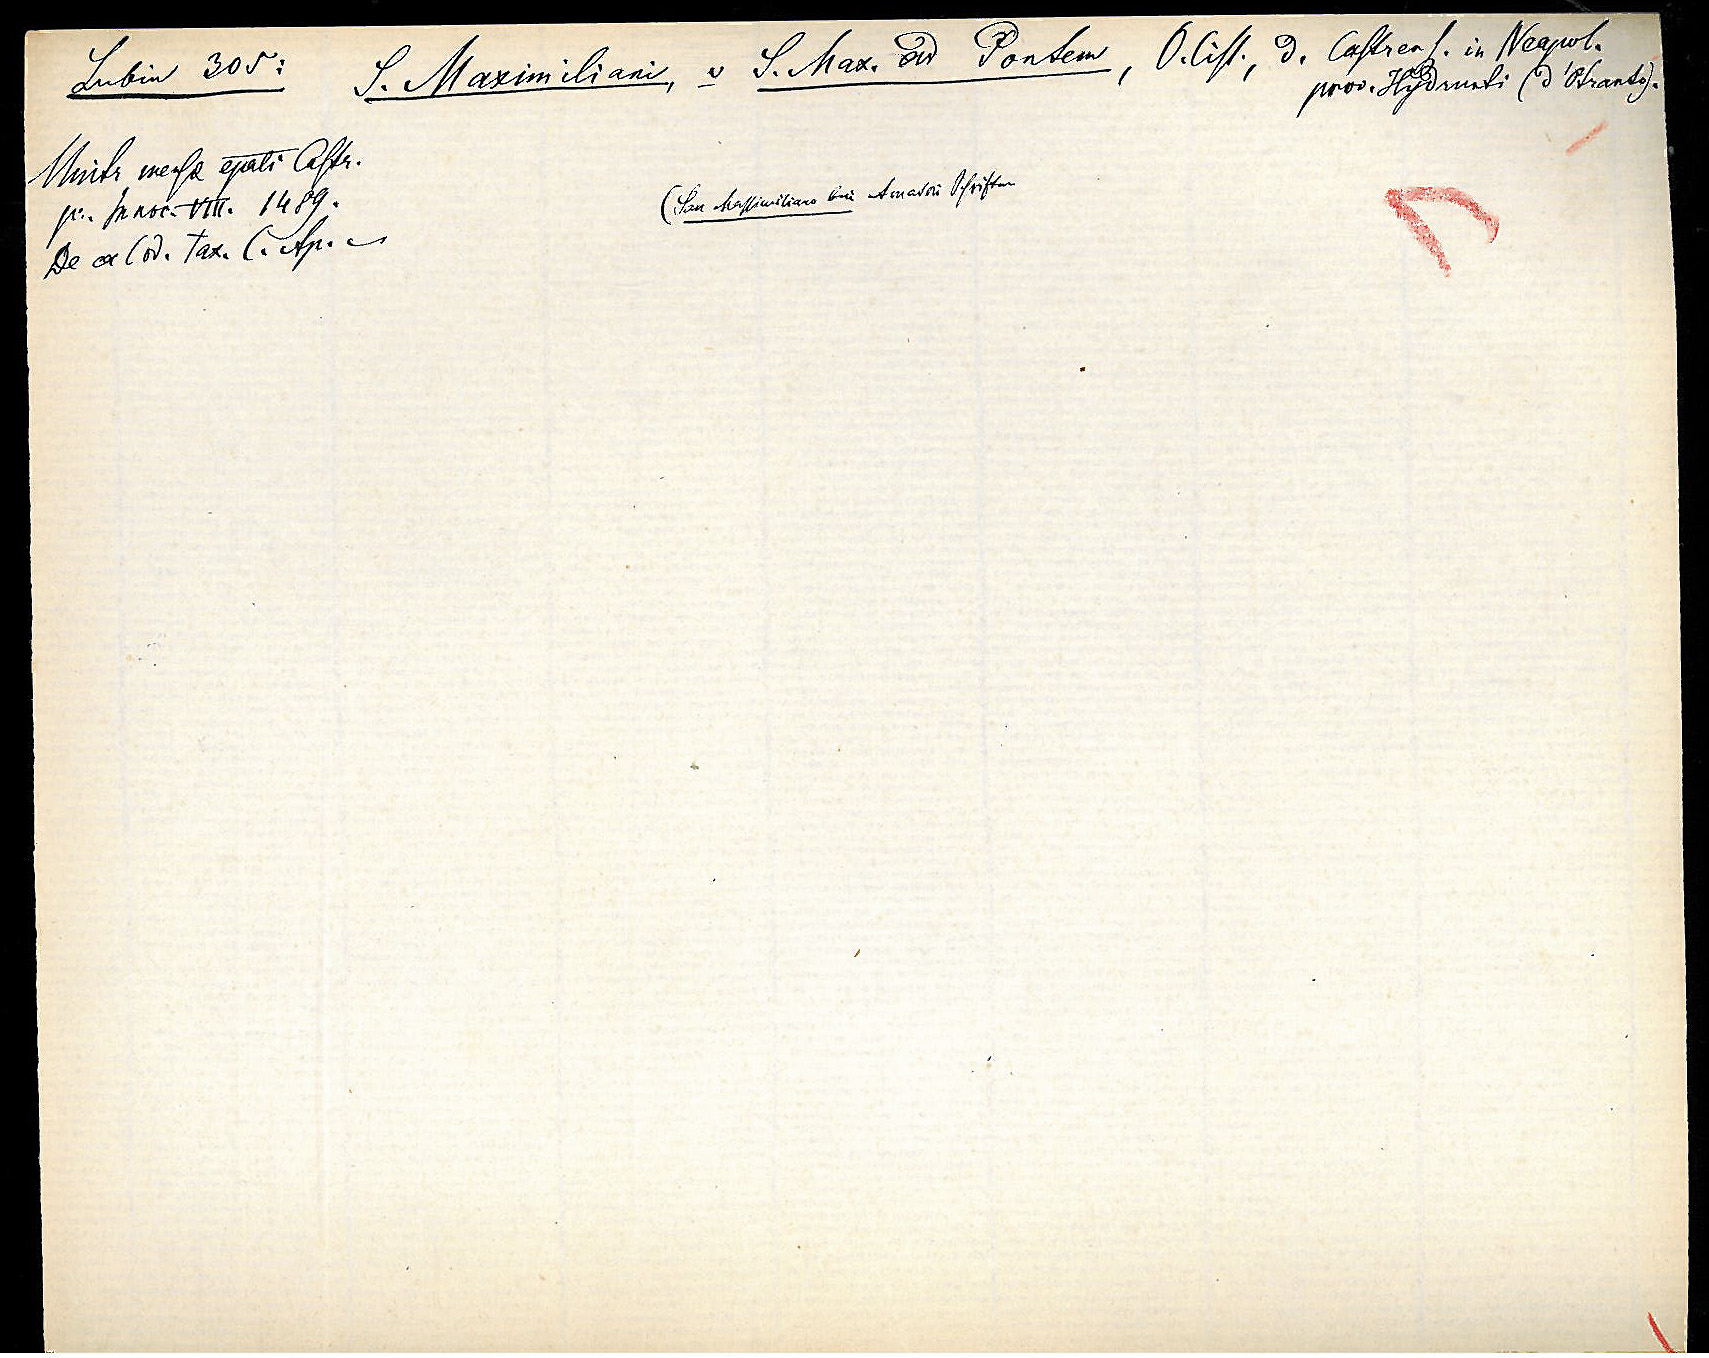 Lubin 305: S. Maximiliani, v S. Max. ad Pontem, O. Cist., d. Castrens. in Neapol.
prov. Hydrunti (d'Otranto).
Unita mensæ epali Castr.
p. Innoc. VIII. 1489.
De ea Cod. Tax. C. Ap.
(San Massimiliano bei Schriften